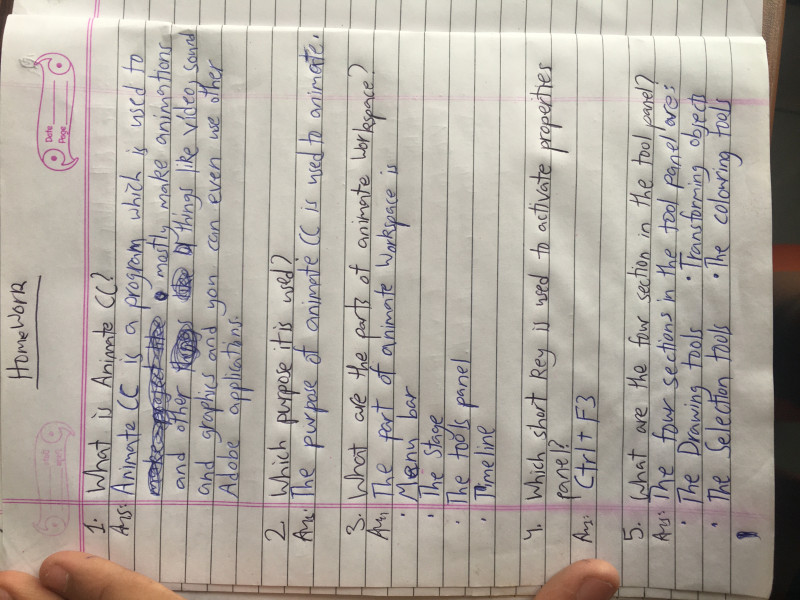 Date
Page
HomeWork
1. What is Animate CC?
Ans: Animate CC is a program which is used to
mostly make animations
and other things like video, sound
and graphics and you can even use other
Adobe applications.
2. Which purpose it is used?
Ans: The purpose of animate CC is used to animate.
3. What are the parts of animate workspace?
Ans: The part of animate workspace is
• Menu bar
• The Stage
• The tools panel
• Timeline
4. Which short key is used to activate properties
panel?
Ans: Ctrl + F3
5. What are the four section in the tool panel?
Ans: The four sections in the tool panel are:
• The Drawing tools • Transforming objects
• The Selection tools • The colouring tools